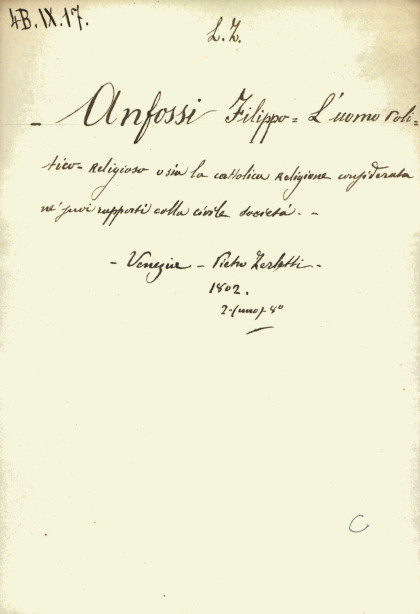 4B.IX.17.
L.Z.
- Anfossi Filippo = L'uomo Poli-
tico-Religioso o sia la cattolica Religione considerata
ne' suoi rapporti colla civile società. -
- Venezia - Pietro Zerletti -
1802.
8º
C